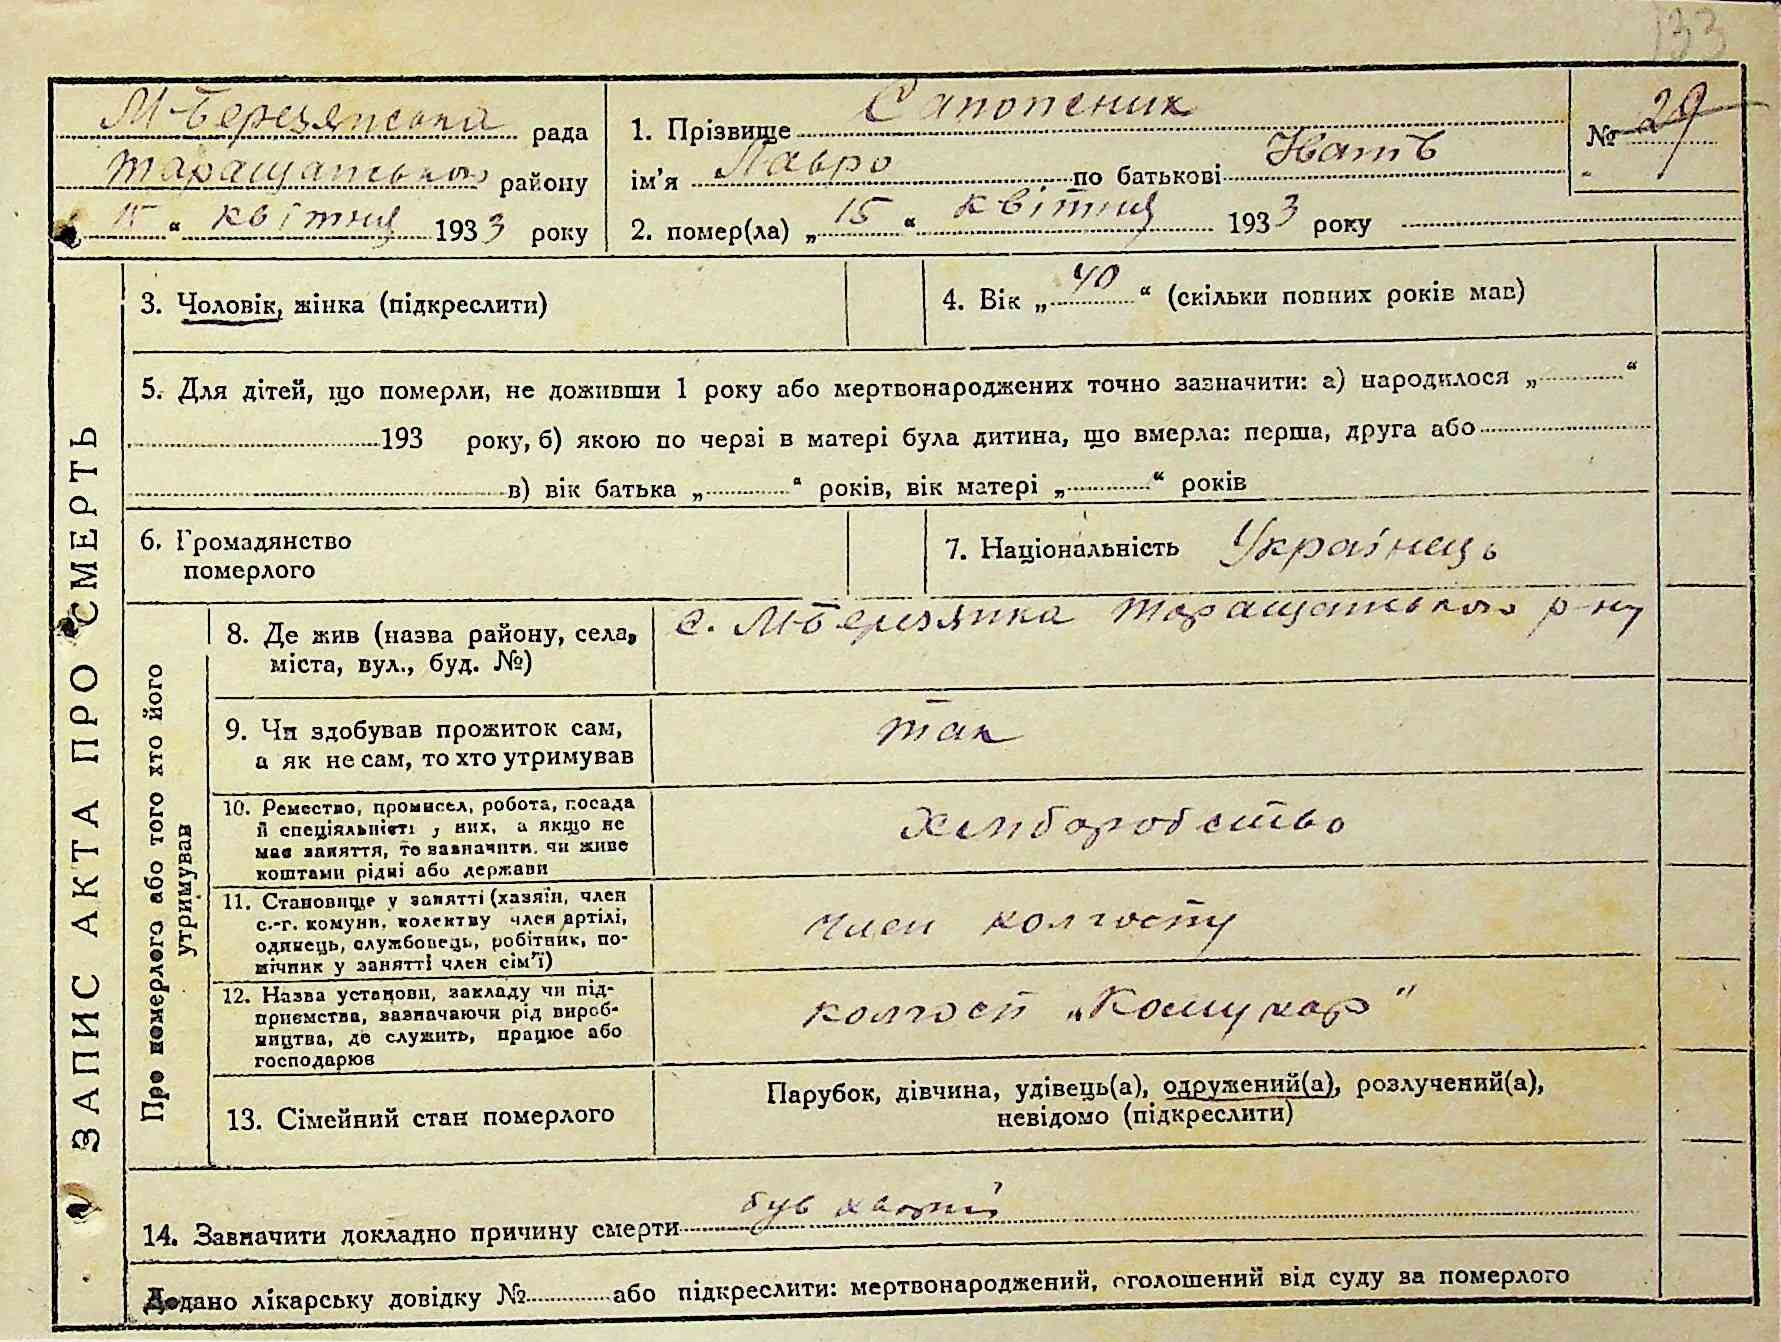 133
М-Березянська рада
Таращанського району
15 " квітня 1933 року
1. Прізвище Сапопеник
ім'я Лавро по батькові Нватъ
№ 29
2. помер(ла) „ 15 " квітня 1933 року
ЗАПИС АКТА ПРО СМЕРТЬ
3. Чоловік, жінка (підкреслити)
4. Вік „ 40 " (скільки повних років мав)
5. Для дітей, що померли, не доживши 1 року або мертвонароджених точно зазначити: а) народилося „ "
193 року, б) якою по черзі в матері була дитина, що вмерла: перша, друга або
в) вік батька „ " років, вік матері „ " років
6. Громадянство
померлого
7. Національність Українець
Про померлого або того хто його
утримував
8. Де жив (назва району, села,
міста, вул., буд. №)
с. М-Березянка Таращанського р-ну
9. Чи здобував прожиток сам,
а як не сам, то хто утримував
так
10. Ремество, промисел, робота, посада
й спеціяльність у них, а якщо не
має заняття, то зазначити, чи живе
коштами рідні або держави
Хлиборобство
11. Становище у занятті (хазяїн, член
с.-г. комуни, колективу член артілі,
одинець, службовець, робітник, по-
мічник у занятті член сім'ї)
член колгоспу
12. Назва установи, закладу чи під-
приємства, зазначаючи рід вироб-
ництва, де служить, працює або
господарює
колгосп „Комунар"
13. Сімейний стан померлого
Парубок, дівчина, удівець(а), одружений(а), розлучений(а),
невідомо (підкреслити)
14. Зазначити докладно причину смерти був хворий
Додано лікарську довідку № або підкреслити: мертвонароджений, оголошений від суду за померлого